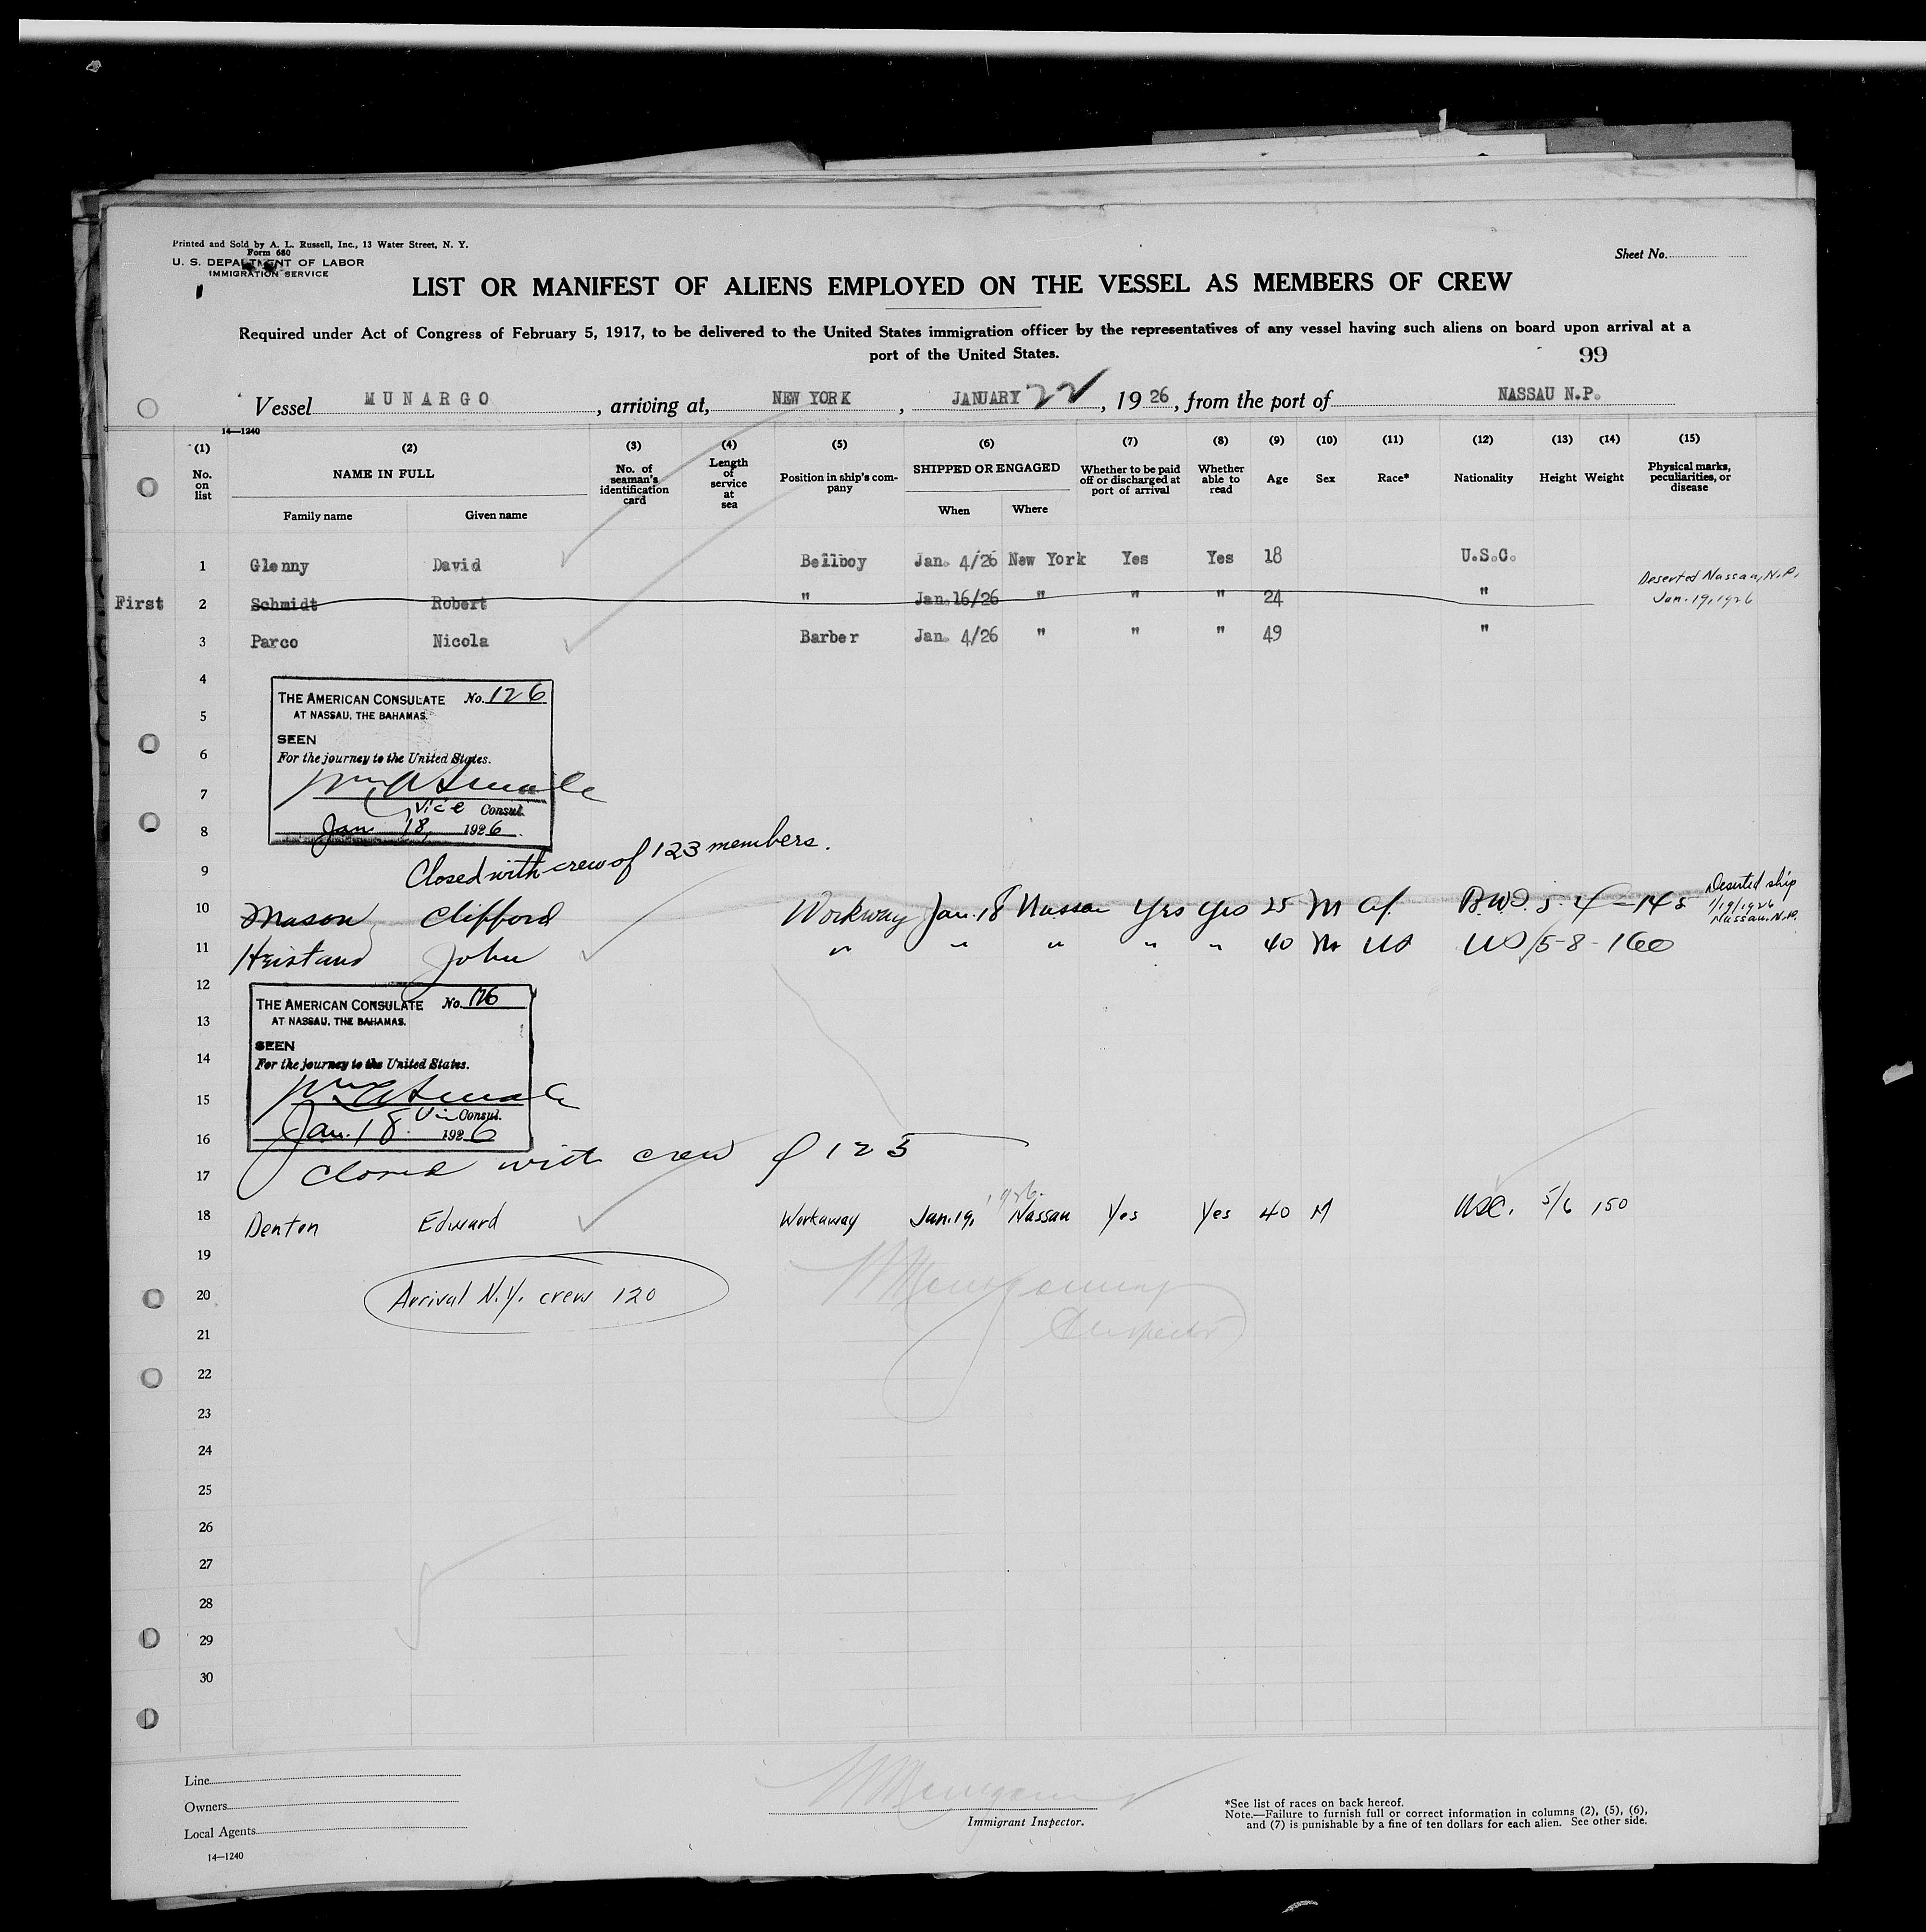 Printed and Sold by A. L. Russell, Inc., 13 Water Street, N. Y.
Form 680
U. S. DEPARTMENT OF LABOR
IMMIGRATION SERVICE
Sheet No.
LIST OR MANIFEST OF ALIENS EMPLOYED ON THE VESSEL AS MEMBERS OF CREW
Required under Act of Congress of February 5, 1917, to be delivered to the United States immigration officer by the representatives of any vessel having such aliens on board upon arrival at a
port of the United States.
99
Vessel MUNARGO, arriving at, NEW YORK, JANUARY 22, 1926, from the port of NASSAU N.P.
14—1240
(1) (2) (3) (4) (5) (6) (7) (8) (9) (10) (11) (12) (13) (14) (15)
No. on list NAME IN FULL No. of seaman's identification card Length of service at sea Position in ship's company SHIPPED OR ENGAGED Whether to be paid off or discharged at port of arrival Whether able to read Age Sex Race* Nationality Height Weight Physical marks, peculiarities, or disease
Family name Given name When Where
1 Glenny David Bellboy Jan. 4/26 New York Yes Yes 18 U.S.C.
First 2 Schmidt Robert " Jan.16/26 " " " 24 " Deserted Nassau, N.P. Jan. 19, 1926
3 Parco Nicola Barber Jan. 4/26 " " " 49 "
4
THE AMERICAN CONSULATE No. 126
5
AT NASSAU, THE BAHAMAS.
SEEN
6
For the journey to the United States.
7
Vice Consul.
8
Jan 18, 1926.
9
Closed with crew of 123 members.
10 Mason Clifford Workway Jan. 18 Nassau Yes Yes 25 M Af. B.W.I. 5-4-145 Deserted ship 1/19/1926 Nassau, N.P.
11 Heistand John " " " " " 40 M US US 5-8-160
12
THE AMERICAN CONSULATE No. 126
13
AT NASSAU, THE BAHAMAS.
SEEN
14
For the journey to the United States.
15
Vice Consul.
16
Jan. 18. 1926
17
Closed with crew of 125
18 Denton Edward Workaway Jan. 19, 1926. Nassau Yes Yes 40 M USC. 5/6 150
19
20
Arrival N.Y. crew 120
21
Inspector
22
23
24
25
26
27
28
29
30
Line
Owners
Local Agents
14—1240
Immigrant Inspector.
*See list of races on back hereof.
Note.—Failure to furnish full or correct information in columns (2), (5), (6),
and (7) is punishable by a fine of ten dollars for each alien. See other side.